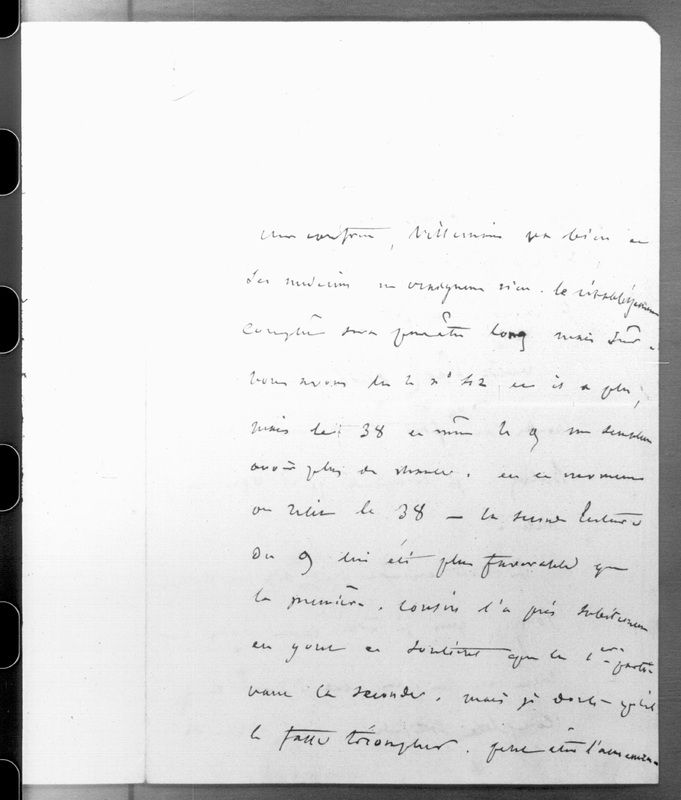 mon confrère, Villemain va bien et
les médecins ne craignent rien. le rétablissement
complet sera peut être long mais sûr.
nous avons lu le n° 42 et il a plu,
mais le 38 et même le 9 me semblent
avoir plus de chance. en ce moment
on relit le 38 — la seconde lecture
du 9 lui été plus favorable que
la première. Cousin l'a pris subitement
en gout et soutient que la 1ère partie
vaut la seconde. mais je doute qu'il
le fasse triompher. peut être